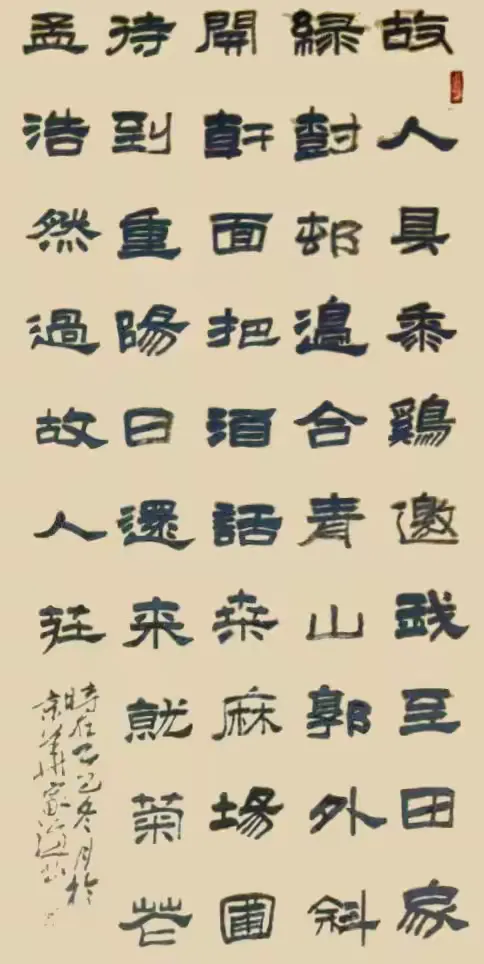 故人具黍鷄邀我至田家
緑尌邨邊合青山郭外斜
開軒面把酒話桒麻場圃
待到重陽日還来就菊花
孟浩然過故人莊
時在乙巳冬月於
京華寓